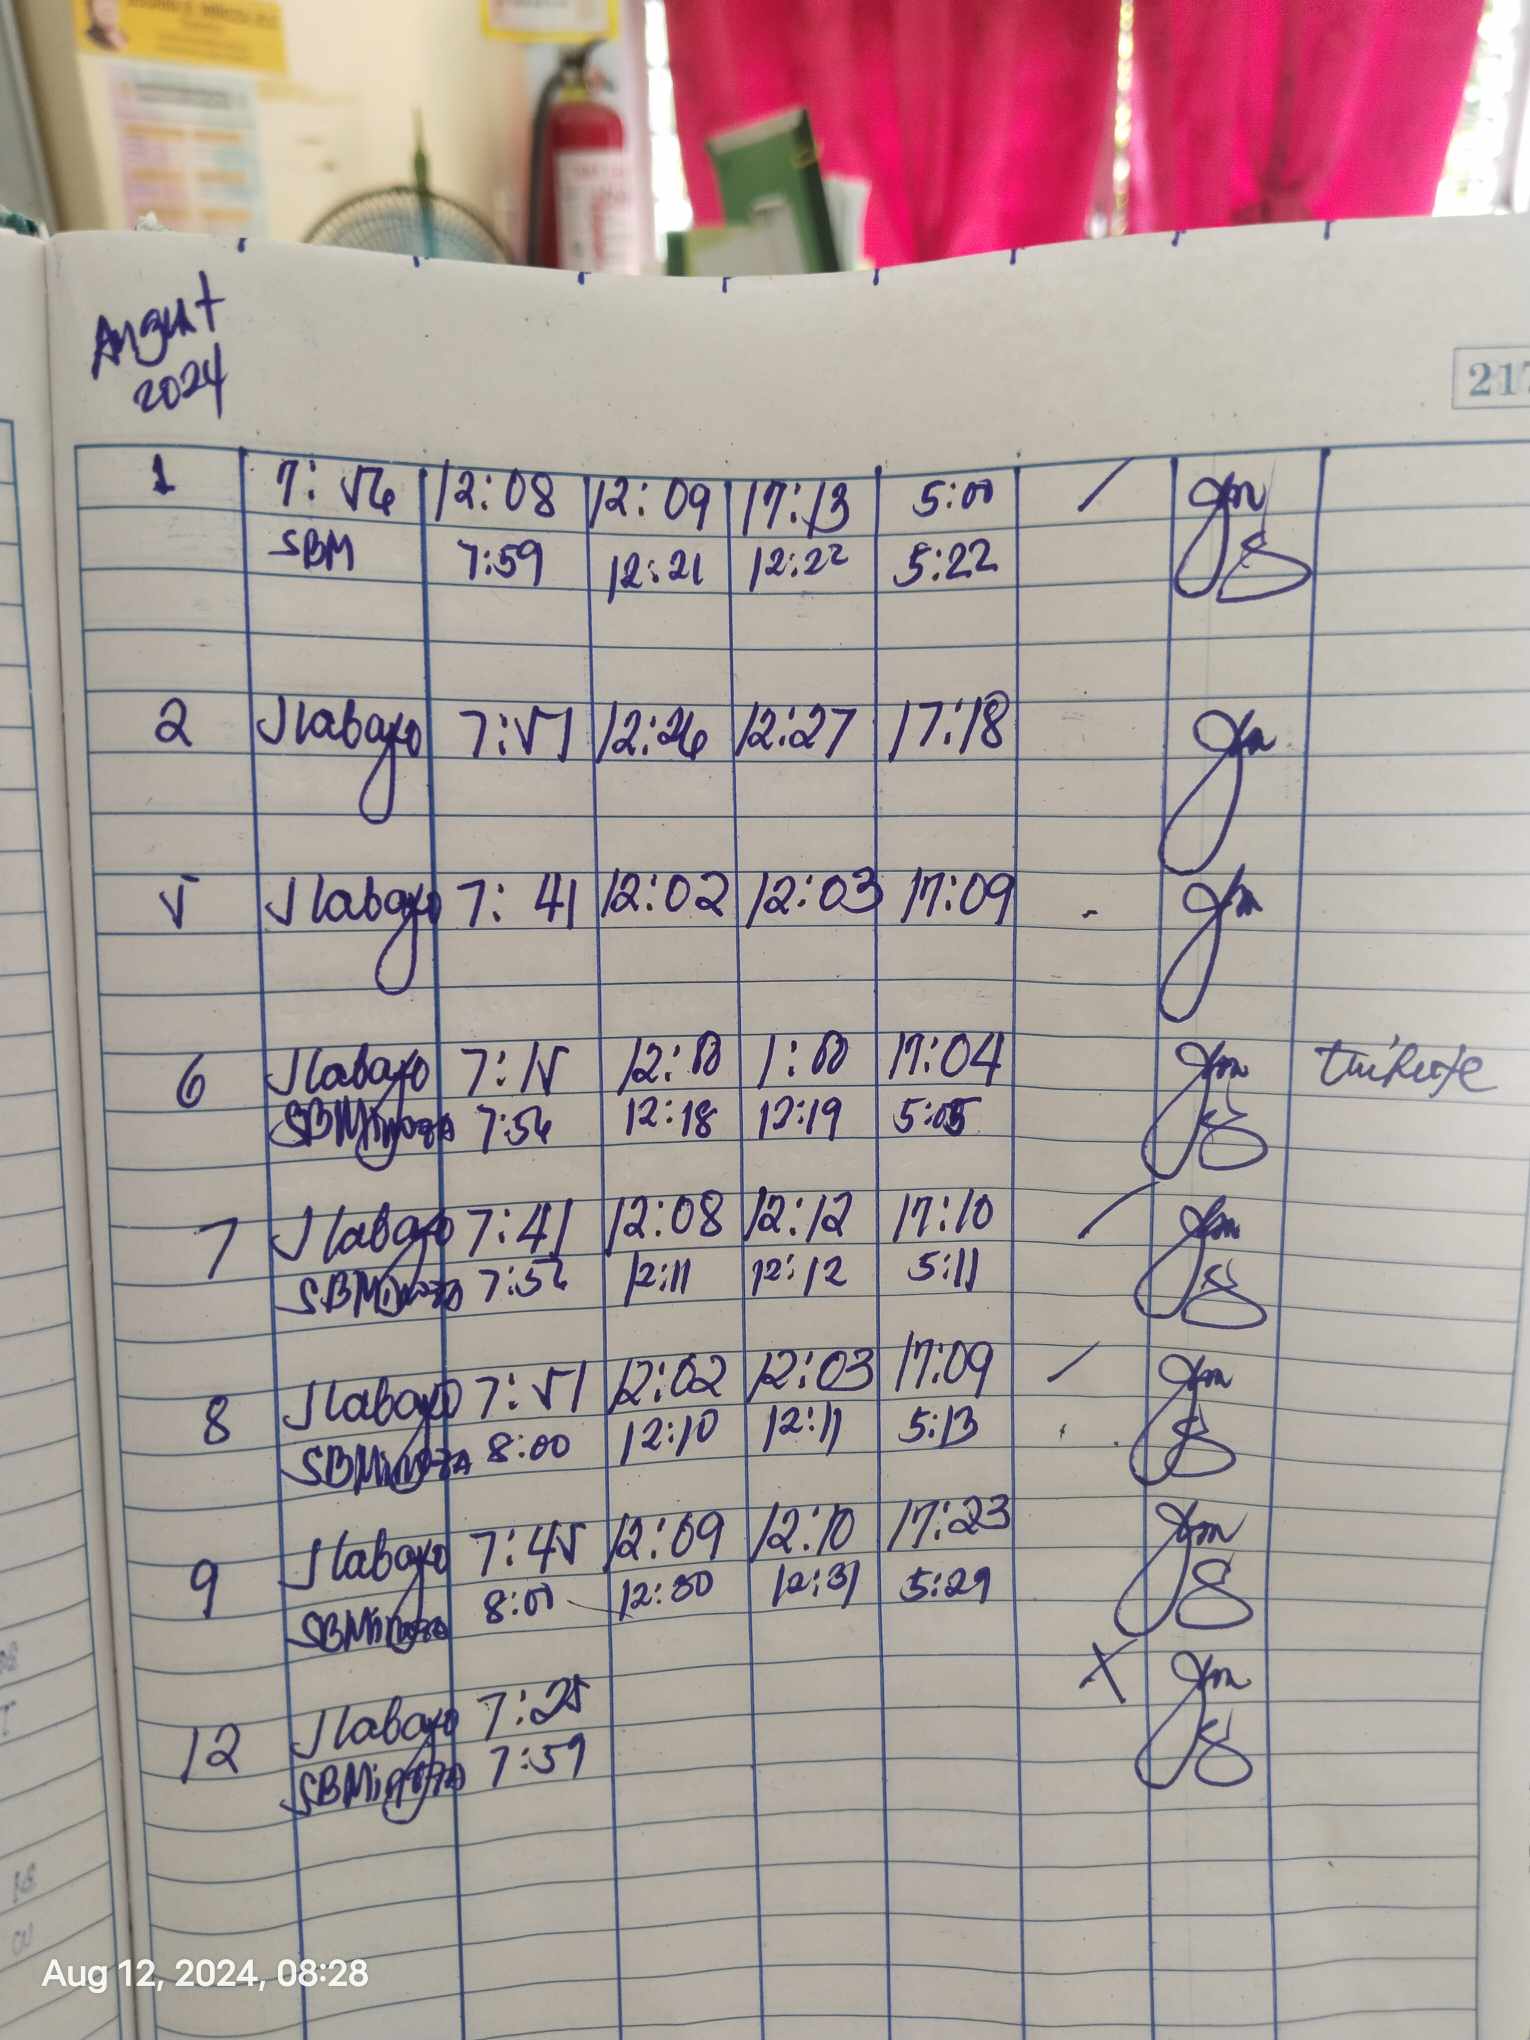 August
2024
217
1 7:56 12:08 12:09 17:13 5:00 /
SBM 7:59 12:21 12:22 5:22
2 Jlabayo 7:51 12:26 12:27 17:18
5 Jlabayo 7:41 12:02 12:03 17:09 -
6 Jlabayo 7:15 12:00 1:00 17:04
SBMinoza 7:56 12:18 12:19 5:05
7 Jlabayo 7:41 12:08 12:12 17:10 /
SBMinoza 12:11 12:12 5:11
8 Jlabayo 7:51 12:02 12:03 17:09 /
SBMinoza 8:00 12:10 12:11 5:13
9 Jlabayo 7:45 12:09 12:10 17:23
SBMinoza 8:00 12:30 12:31 5:29
12 Jlabayo 7:25 X
SBMinoza 7:59
Aug 12, 2024, 08:28